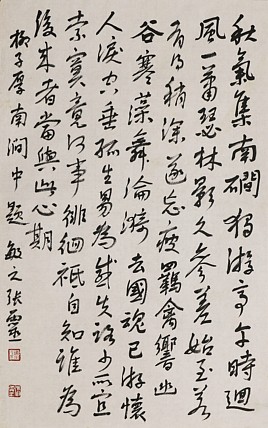 秋氣集南磵獨游亭午時迴
風一蕭瑟林影久參差始至若
有得稍深遂忘疲羈禽響幽
谷寒藻舞淪漪去國魂已游懷
人淚空垂孤生易為感失路少所宜
索寞竟何事徘徊祇自知誰為
後來者當與此心期
柳子厚南澗中題 敏之張